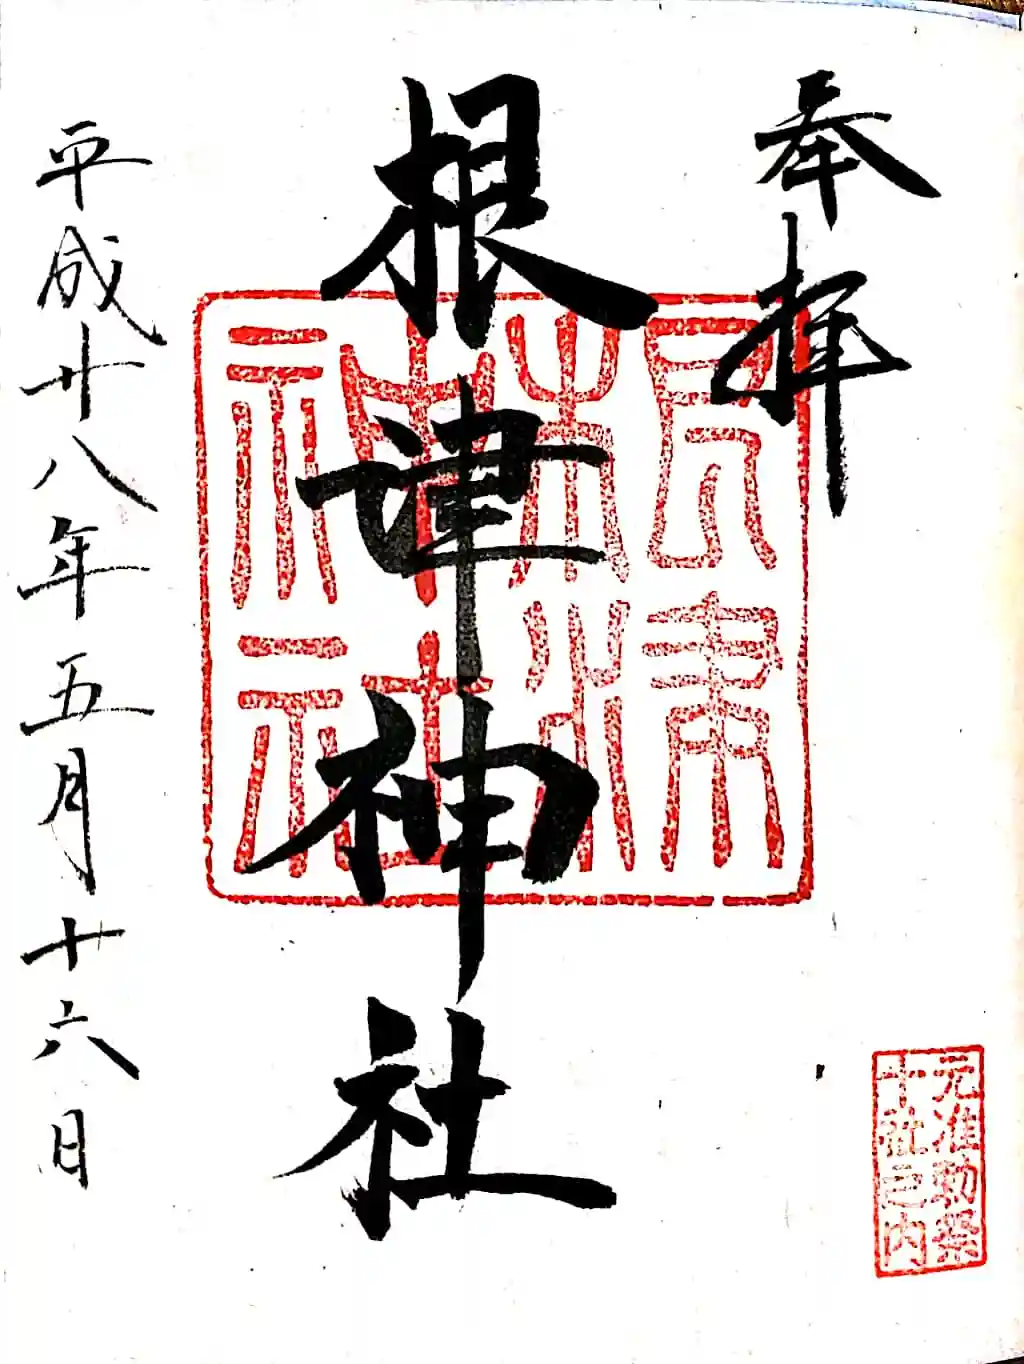 奉拝
元准勅祭
十社之内
根津神社
根津
神社
平成廿八年五月十六日